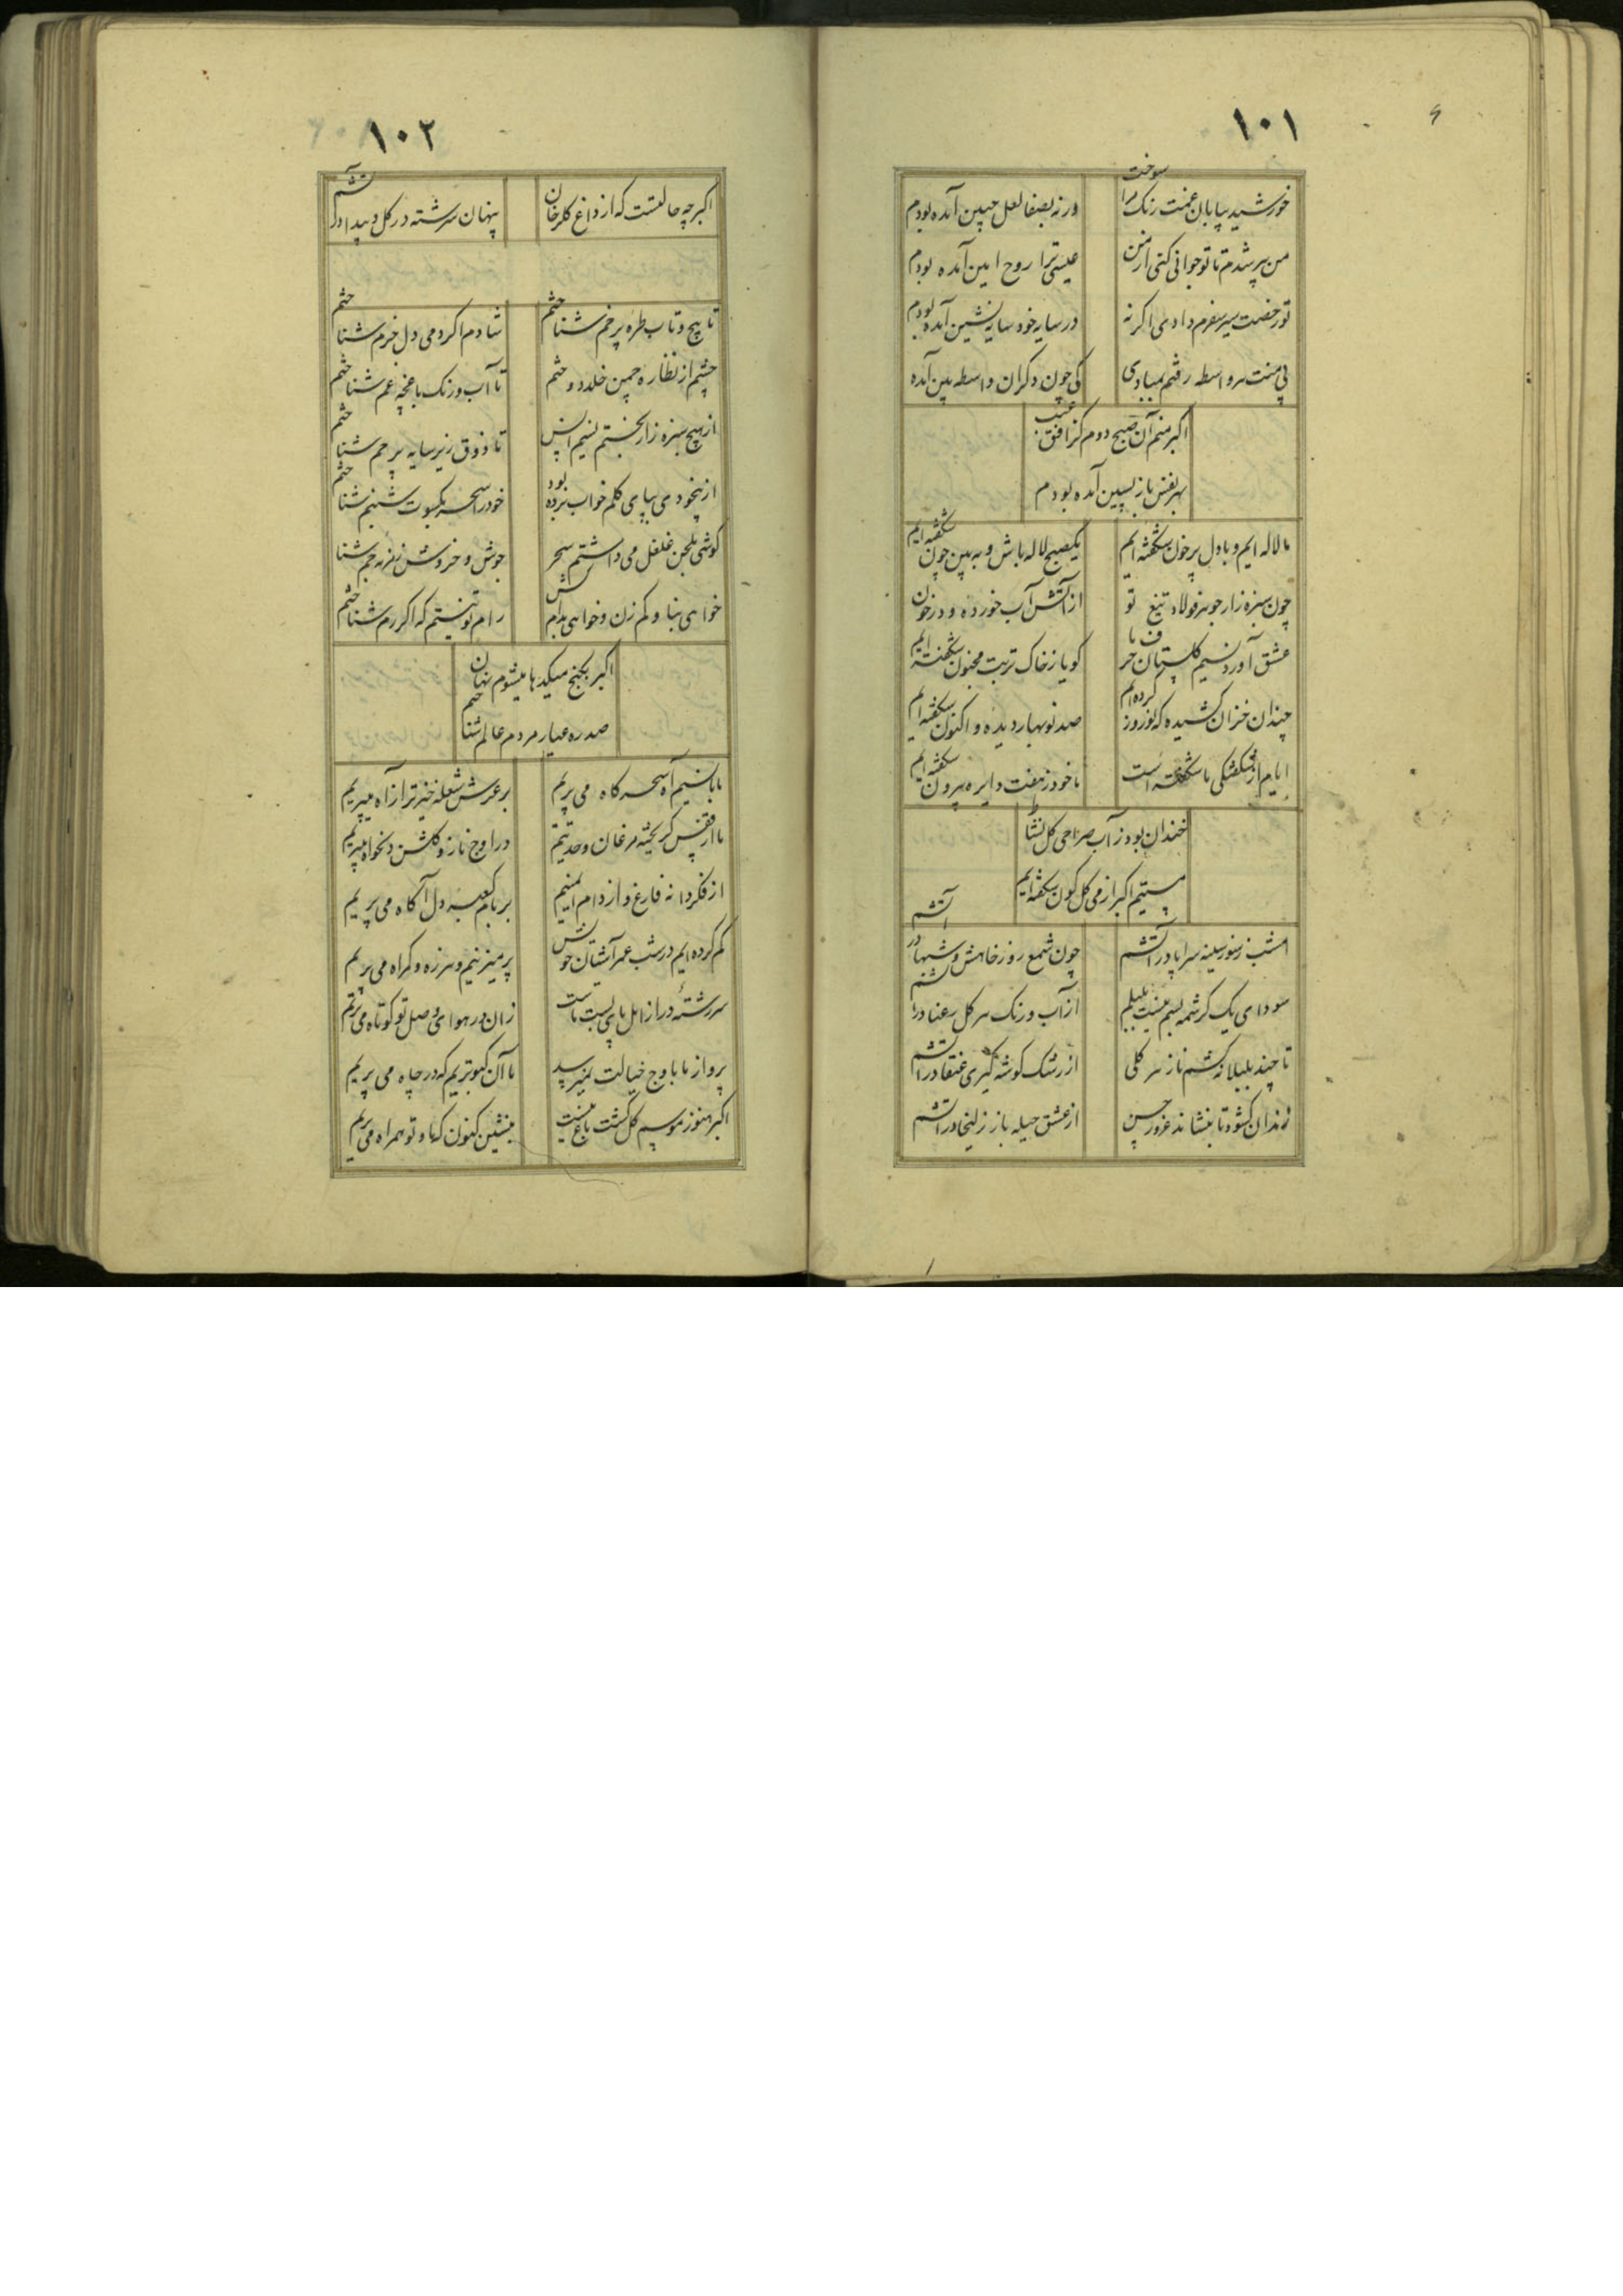 ۱۰۱
خورشید بیابان غمت رنک مرا سوخت
ورنه بصفا لعل جبین آمده بودم
من پیر شدم تا تو جوانی کنی از من
عیسی ترا روح امین آمده بودم
تو رخصت سیر سفرم دادی اکر نه
در سایه خود سایه نشین آمده بودم
بی منت و واسطه رفتم بمبادی
کی چون دکران واسطه بین آمده
اکبر منم آن صبح دوم کز افق غیب
بهر نفس باز پسین آمده بودم
ما لاله ایم و با دل پر خون شکفته ایم
یکصبح لاله باش و به بین چون شکفته ایم
چون سبزه زار جوهر فولاد تیغ تو
از آتش آب خورده و در خون
عشق آورد نسیم کلستان حرف ما
کویا ز خاک تربت مجنون شکفته ایم
چندان خزان کشیده که نوروز کرده ام
صد نوبهار دیده و اکنون شکفته ایم
ایام از شکفتکی ما شکفته است
ما خود ز هفت دایره بیرون شکفته ایم
خندان بود ز آب صراحی کل نشاط
مستیم اکبر از می کل کون شکفته ایم
امشب ز سوز سینه سراپا در آتشم
چون شمع روز خامش و شبها در آتشم
سودای یک کرشمه بسم نیست بلبلم
از آب و رنک هر کل رعنا در آتشم
تا چند بلبلانه کشم ناز هر کلی
از رشک کوشه کیری عنقا در آتشم
زندان کشود تا بنشاند غرور حسن
از عشق حیله باز زلیخا در آتشم
۱۰۲
اکبر چه حالتست که از داغ کلرخان
پنهان سرشته در کل و پیدا در آتشم
تا پیچ و تاب طره پر خم شناختم
شادم اکر دمی دل خرم شناختم
چشم از نظاره چمن خلد دوختم
تا آب و رنک باغچه غم شناختم
از هیچ سبزه زار نجستم نسیم انس
تا ذوق زیر سایه پرچم شناختم
از بیخودی بپای کلم خواب برده بود
خود را سحر بکسوت شبنم شناختم
کوشی بلحن غلغل می داشتم سحر
جوش و خروش زمزمه جم شنا
خواهی بنا و کم زن و خواهی بدام کش
رام تو نیستم که اکر رم شناختم
اکبر بکنج میکدها میشوم نهان
صد ره عیار مردم عالم شناختم
ما با نسیم آه سحرکاه می پریم
بر عرش شعله خیز تر از آه میپریم
ما از قفس کریخته مرغان وحدتیم
در اوج ناز و کلشن دلخواه میپریم
از فکر دانه فارغ و از دام ایمنیم
بر بام کعبه دل آکاه می پریم
کم کرده ایم در شب عمر آشیان خویش
پر میزنیم و هرزه و کمراه می پریم
سر رشتهٔ دراز امل پای بست ماست
زان در هوای وصل تو کوتاه می پریم
پرواز ما باوج خیالت نمیرسد
ما آن کبوتریم که در چاه می پریم
اکبر هنوز موسم کل کشت باغ نیست
بنشین کنون که ما و تو همراه می پریم